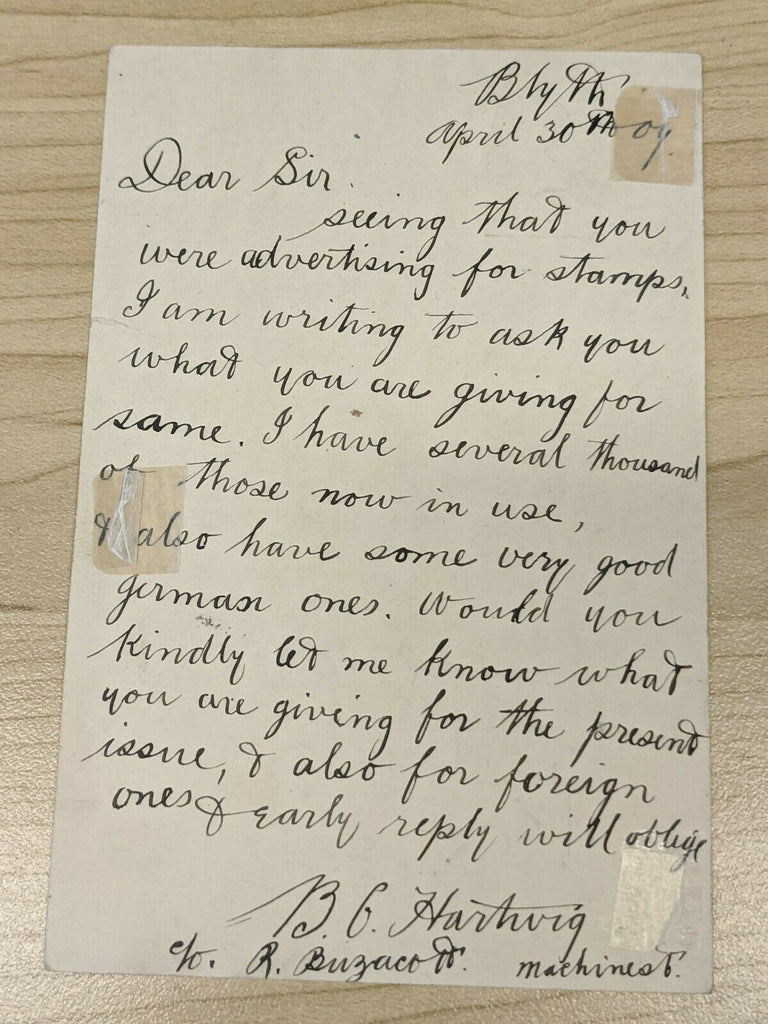 Blyth
April 30th 09.
Dear Sir.
seeing that you
were advertising for stamps,
I am writing to ask you
what you are giving for
same. I have several thousand
of those now in use,
& also have some very good
german ones. Would you
kindly let me know what
you are giving for the present
issue, & also for foreign
ones & early reply will oblige
B. C. Hartwig
c/o. R. Buzacott. machinest.